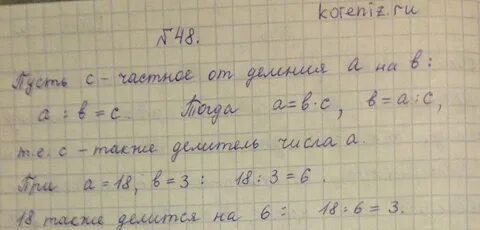 koreniz.ru
№48.
Пусть c – частное от деления a на b:
a : b = c. Тогда a = b · c, b = a : c,
т.е. c – также делитель числа a.
При a = 18, b = 3 : 18 : 3 = 6 .
18 также делится на 6 : 18 : 6 = 3.